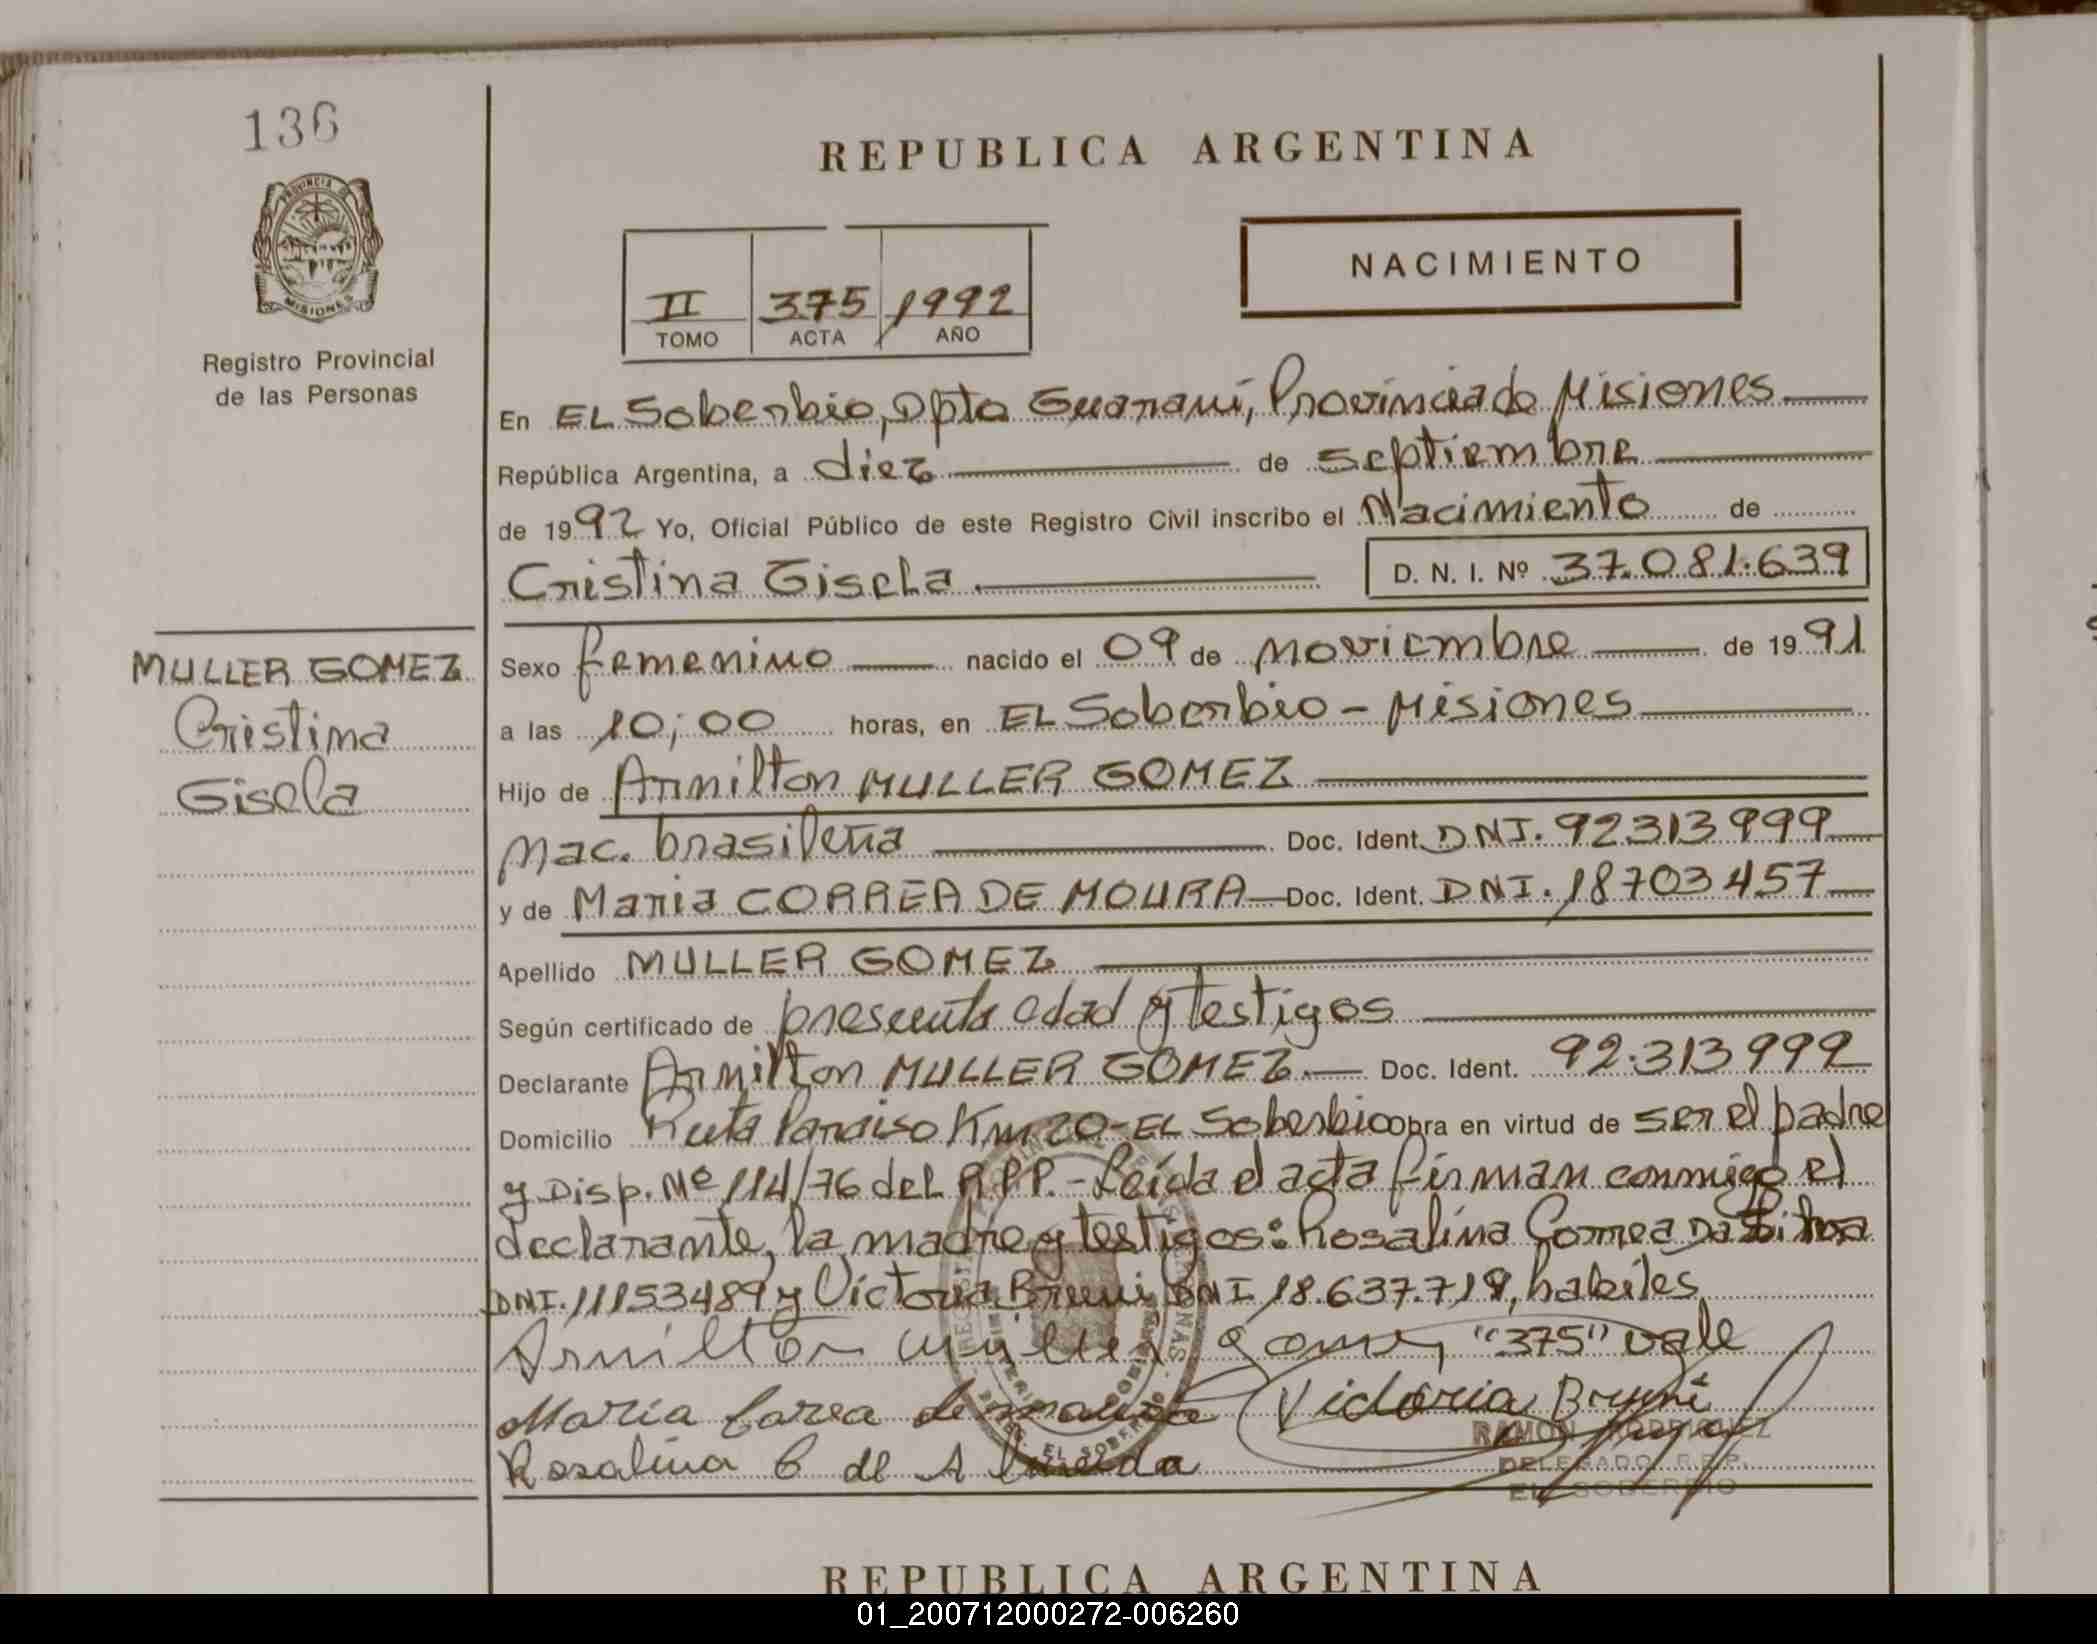 136
REPUBLICA ARGENTINA
PROVINCIA DE
MISIONES
Registro Provincial
de las Personas
II 375 1992
TOMO ACTA AÑO
NACIMIENTO
En EL Soberbio, Dpto Guaraní, Provincia de Misiones
República Argentina, a diez de septiembre
de 1992 Yo, Oficial Público de este Registro Civil inscribo el Nacimiento de
Cristina Gisela D. N. I. Nº 37.081.639
MULLER GOMEZ
Cristina
Gisela
Sexo femenino nacido el 09 de noviembre de 1991
a las 10;00 horas, en EL Soberbio - Misiones
Hijo de Armilton MULLER GOMEZ
Nac. brasileña Doc. Ident. DNI. 92313999
y de Maria CORREA DE MOURA Doc. Ident. DNI. 18703457
Apellido MULLER GOMEZ
Según certificado de presunta edad y testigos
Declarante Armilton MULLER GOMEZ. Doc. Ident. 92.313999
Domicilio Ruta Paraiso Km 20 - EL Soberbio obra en virtud de ser el padre
y Disp. Nº 114/76 del R.P.P. - Leída el acta firman conmigo el
declarante, la madre y testigos: Rosalina Correa Da Silva
DNI. 11153489 y Victoria Bruni DNI 18.637.719, habiles
Armilton Muller gomez "375" vale
Maria Carea de moura Victoria Bruni
RAMON RODRIGUEZ
Rosalina C de Almeida
DELEGADO R.P.P.
EL SOBERBIO
REPUBLICA ARGENTINA
01_200712000272-006260